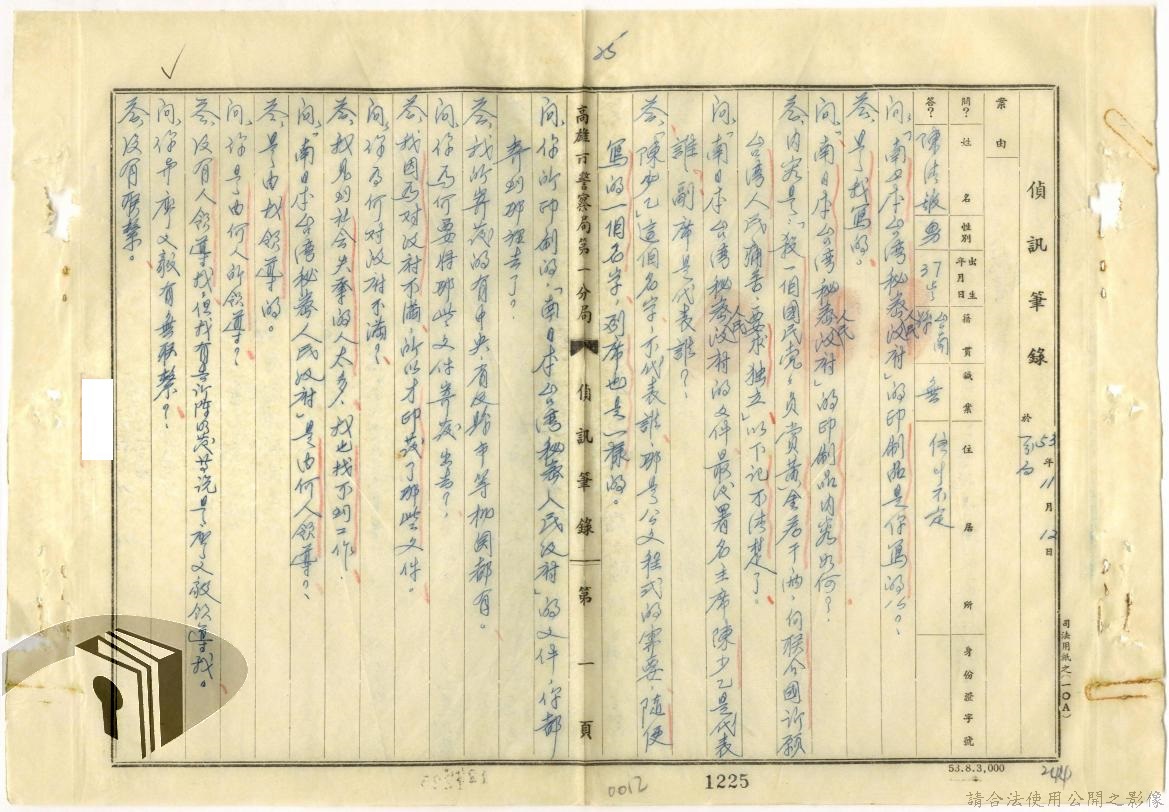 25
偵訊筆錄 於 53年11月12日
案由
問? 姓名 性別 出生年月日 籍貫 職業 住居所 身份證字號
答? 陳 男 37歲 台南 無 住 不定
問:「南日本台湾秘密人民政府」的印制品是你寫的么?
答:是我寫的。
問:「南日本台湾秘密人民政府」的印制品內容如何?
答:內容是:「殺一個國民党党員賞黃金若干両,向联合國訴願
台湾人民痛苦,要求独立」以下記不清楚了。
問:「南日本台湾秘密人民政府」的文件最後署名主席:陳少乙是代表
誰,副席是代表誰?
答:「陳少乙」這個名字,不代表誰,那是公文程式的需要,隨便
寫的一個名字,副席也是一樣的。
高雄市警察局第一分局 偵訊筆錄 第一頁
問:你所印制的,「南日本台湾秘密人民政府」的文件,你都
寄到那裡去了?
答:我所寄發的有中央,省及縣市等机関都有。
問:你為何要将那些文件寄發出去?
答:我因為对政府不滿,所以才印發了那些文件。
問:你為何对政府不滿?
答:我見到社会失業的人太多,我也找不到工作。
問:「南日本台湾秘密人民政府」是由何人領導?
答:是由我領導的。
問:你是由何人所領導?
答:沒有人領導我,但我有告訴陳明發等說是廖文毅領導我。
問:你與廖文毅有無联繫?
答:沒有联繫。
司法用紙之(一〇A)
53.8.3,000
244
0012
1225
請合法使用公開之影像